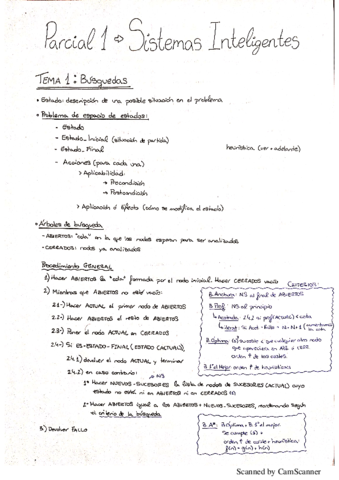 Parcial 1 → Sistemas Inteligentes
TEMA 1: Búsquedas
• Estado: descripción de una posible situación en el problema
• Problema de espacio de estados:
- Estado
- Estado_Inicial (situación de partida)
- Estado_Final
heurística (ver + adelante)
- Acciones (para cada una)
> Aplicabilidad:
→ Precondición
→ Postcondición
> Aplicación o Efecto (cómo se modifica el estado)
• Árboles de búsqueda
- ABIERTOS: "cola" en la que los nodos esperan para ser analizados
- CERRADOS: nodos ya analizados
Procedimiento GENERAL
1) Hacer ABIERTOS la "cola" formada por el nodo inicial. Hacer CERRADOS vacío
2) Mientras que ABIERTOS no esté vacío:
2.1) Hacer ACTUAL el primer nodo de ABIERTOS
2.2) Hacer ABIERTOS el resto de ABIERTOS
2.3) Poner el nodo ACTUAL en CERRADOS
2.4) Si ES-ESTADO-FINAL (ESTADO (ACTUAL)),
2.4.1) devolver el nodo ACTUAL y terminar
2.4.2) en caso contrario:
1º Hacer NUEVOS-SUCESORES la lista de nodos de SUCESORES (ACTUAL) cuyo
estado no esté ni en ABIERTOS ni en CERRADOS
2º Hacer ABIERTOS igual a los ABIERTOS + NUEVOS-SUCESORES, reordenando según
el criterio de la búsqueda
3) Devolver FALLO
CRITERIOS:
B. Anchura: NS al final de ABIERTOS
B. Prof: NS al principio
B. Óptima:
orden ↑ de los costes
B. 1º el Mejor: orden ↑ de heurísticas
B. A*: B. Óptima + B. 1º el mejor.
Se cumple
orden ↑ de coste + heurística:
f(n) = g(n) + h(n)
Scanned by CamScanner